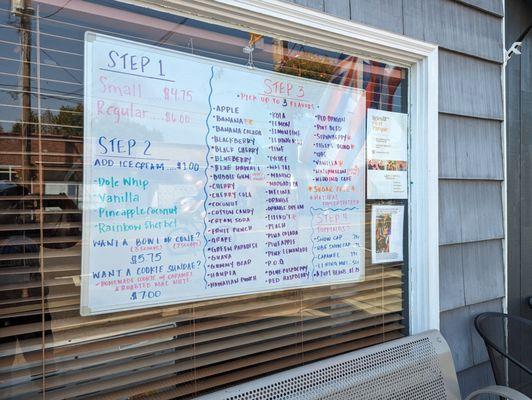 STEP 1
Small ...... $4.75
Regular .... $6.00
STEP 2
ADD ICE CREAM ...... $1.00
Dole Whip
Vanilla
Pineapple Coconut
Rainbow Sherbet
WANT A BOWL OR CONE?
$5.75
WANT A COOKIE SUNDAE?
$7.00
STEP 3
PICK UP TO 3 FLAVORS
APPLE
BANANA
BANANA COLADA
BLACKBERRY
BLACK CHERRY
BLUEBERRY
BLUE HAWAII
BUBBLE GUM
CHERRY
CHERRY COLA
COCONUT
COTTON CANDY
CREAM SODA
FRUIT PUNCH
GRAPE
GREEN PARADISE
GUAVA
GUMMY BEAR
HAUPIA
HAWAIIAN PUNCH
KOLA
LEMON
LEMONLIME
LIME
LYCHEE
MANGO
MARGARITA
MELONA
ORANGE
ORANGE DREAM
PEACH
PINA COLADA
PINEAPPLE
PINK LEMONADE
P.O.G
BLUE RASPBERRY
RED RASPBERRY
ROOT BEER
TIGER'S BLOOD
UBE
VANILLA
WATERMELON
WEDDING CAKE
SUGAR FREE
STEP 4
SNOW CAP
UBE SNOW CAP
CARAMEL
LI HING MUI